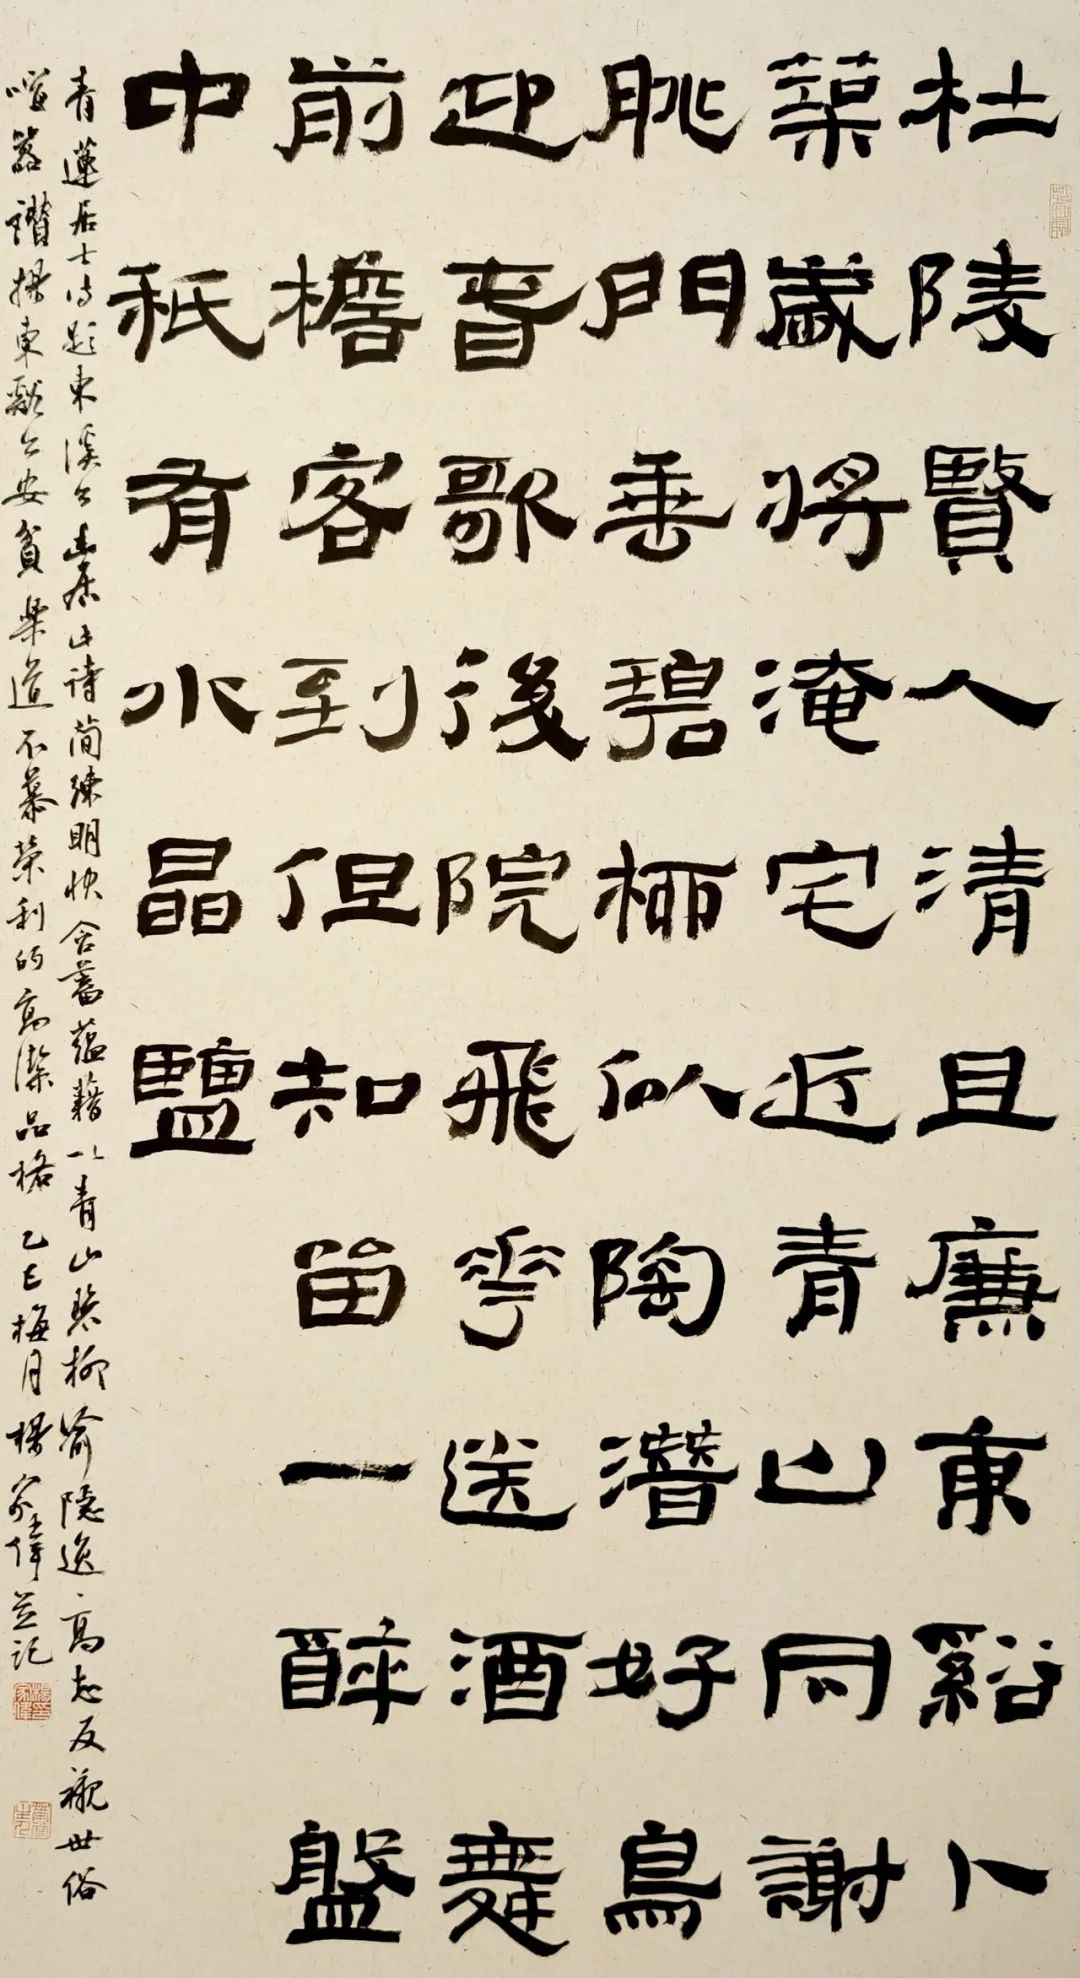 杜陵賢人清且廉東谿卜
築歲將淹宅近青山同謝
朓門垂碧柳似陶潛好鳥
迎春歌後院飛花送酒舞
前檐客到但知留一醉盤
中秪有水晶鹽
青蓮居士詩題東溪公幽居此詩簡練明快含蓄蘊藉以青山碧柳喻隱逸高志反襯世俗
喧囂讚揚東谿公安貧樂道不慕榮利的高潔品格 乙巳梅月楊家偉並記